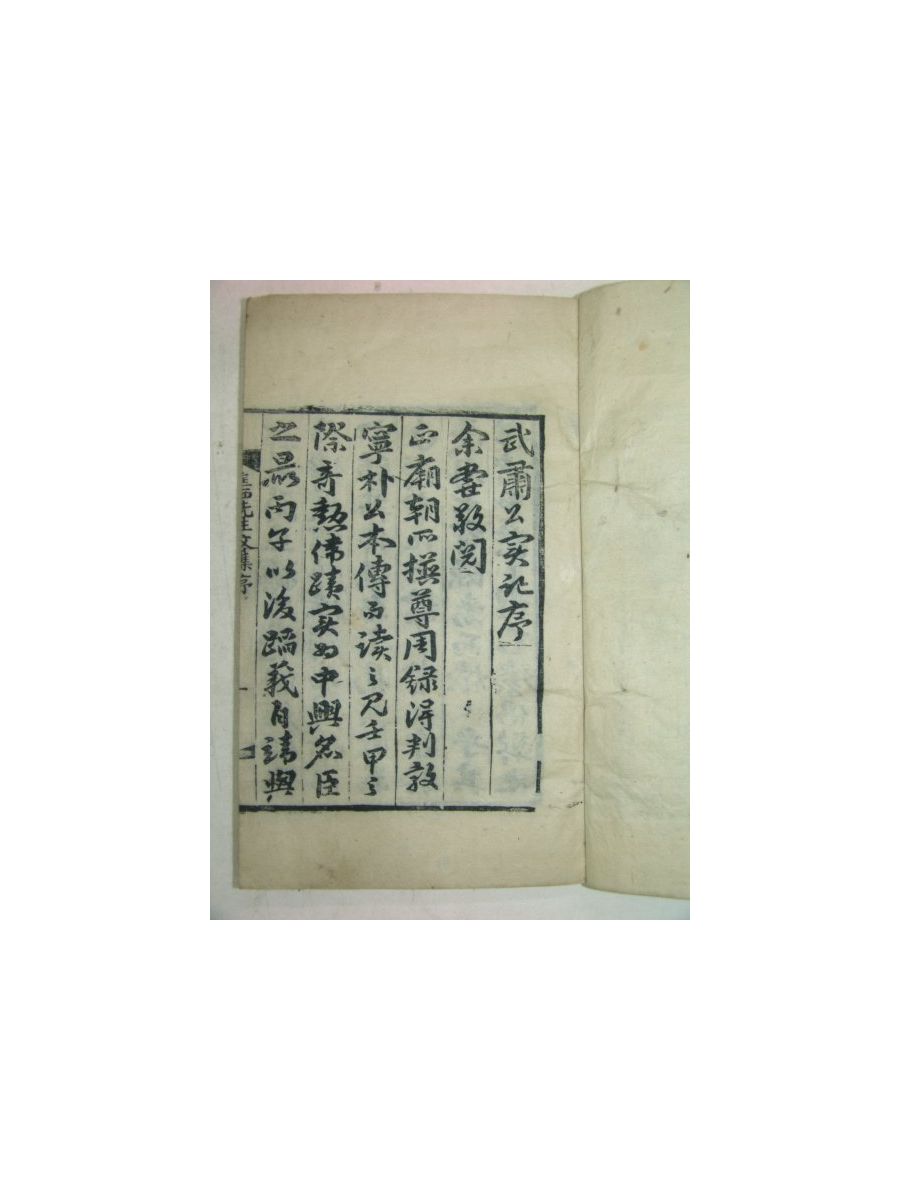 武肅公实記序
余嘗敬閱
正廟朝所撰尊周錄淂判敦
寧朴公本傳而读之況壬甲之
際竒勲偉蹟実為中興名臣
之最丙子以後蹈義自靖與
先生文集序